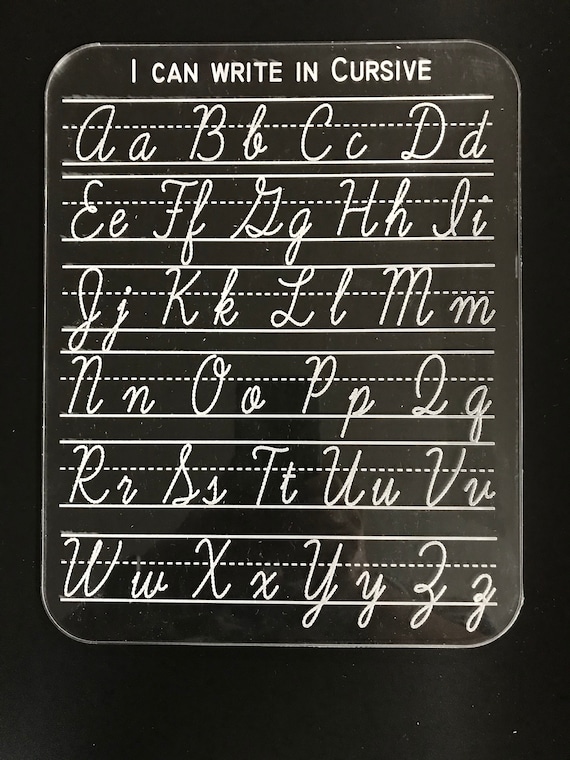 I CAN WRITE IN CURSIVE
Aa Bb Cc Dd
Ee Ff Gg Hh Ii
Jj Kk Ll Mm
Nn Oo Pp Qq
Rr Ss Tt Uu Vv
Ww Xx Yy Zz